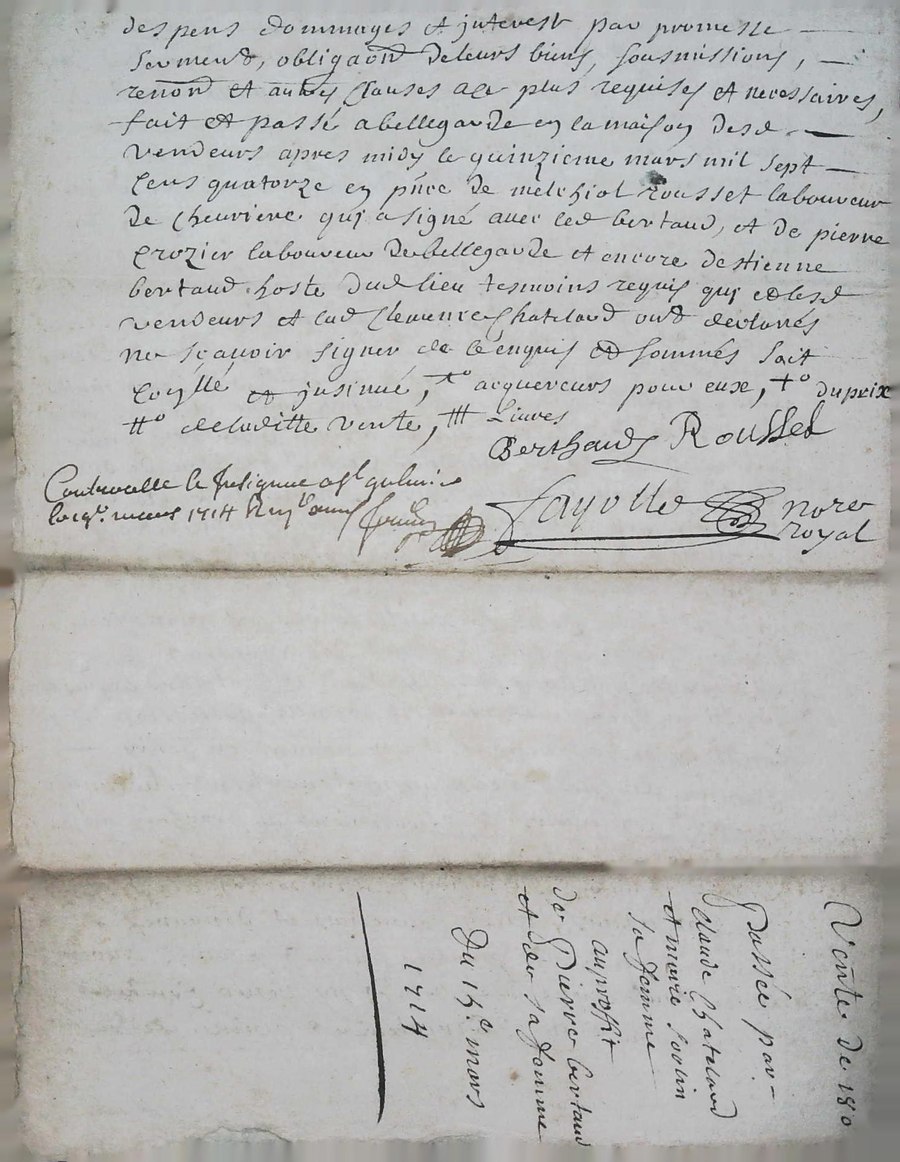 despens dommages et interest par promesse
serment, obligaôn de leurs biens, sousmissions,
renonô et autres clauses ace plus requises et necessaires,
fait et passé a bellegarde en la maison desd
vendeurs apres midy le quinzieme mars mil sept
cens quatorze en pñce de melchiol rousset laboureur
de chevriere qui a signé avec led bertaud, et de pierre
crozier laboureur de bellegarde et encore destienne
bertaud hoste dud lieu tesmoins requis qui et lesd
vendeurs et lad Clemence Chatelard ont declarés
ne sçavoir signer de ce enquis et sommés soit
et insinué, acquereurs pour eux, du prix
de laditte vente, Livres
Berthaud Rousset
Controollé
mars 1714
Fayolle nore
royal
Vente de 180
Passée par
Claude Chatelard
et marie
sa femme
au proffit
de Pierre bertaud
et de sa femme
Du 15e mars
1714